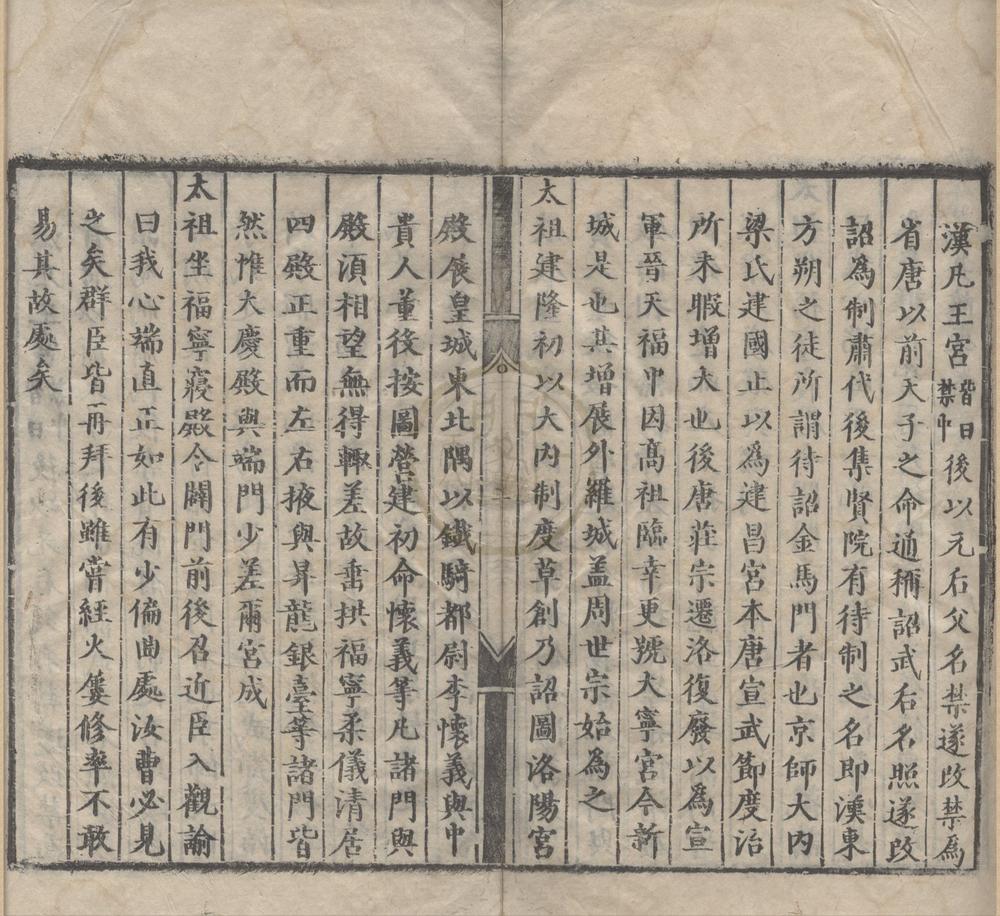 漢凡王宮皆曰禁中後以元后父名禁遂改禁為
省唐以前天子之命通稱詔武后名照遂改
詔為制肅代後集賢院有待制之名即漢東
方朔之徒所謂待詔金馬門者也京師大内
梁氏建國止以為建昌宮本唐宣武節度治
所未暇增大也後唐莊宗遷洛復廢以為宣
軍晉天福中因髙祖臨幸更號大寧宮今新
城是也其增展外羅城盖周世宗始為之
太祖建隆初以大内制度草創乃詔圖洛陽宮
殿展皇城東北隅以鐵騎都尉李懷義與中
貴人董役按圖營建初命懷義等凡諸門與
殿湏相望無得輙差故垂拱福寧柔儀清居
四殿正重而左右掖與昇龍銀臺等諸門皆
然惟大慶殿與端門少差爾宮成
太祖坐福寧寢殿令闢門前後召近臣入觀諭
曰我心端直正如此有少偏曲處汝曹必見
之矣群臣皆再拜後雖嘗經火屢修率不敢
易其故處矣